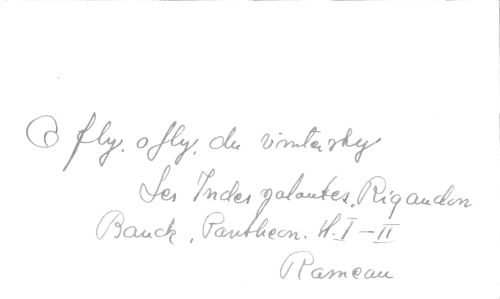 O fly, o fly, du vinterský
Les Indes galantes, Rigaudon
Banck, Pantheon. H. I-II
Rameau